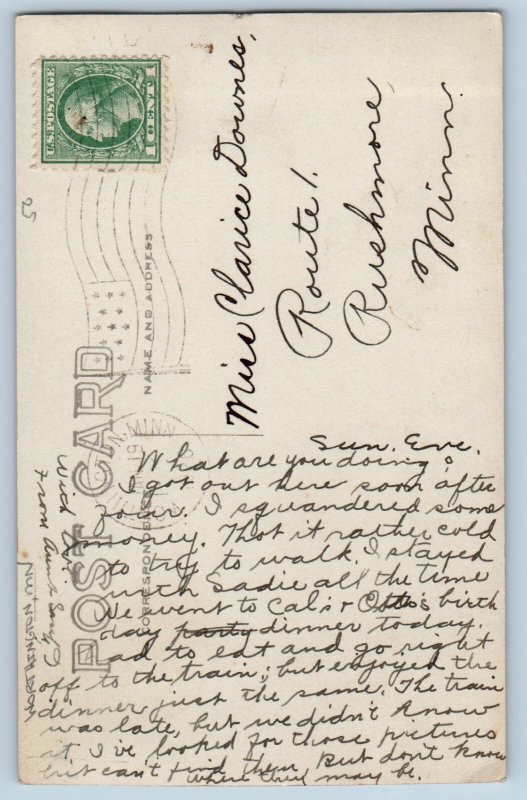 U.S. POSTAGE
1 CENT 1
25
POST CARD
NAME AND ADDRESS
CORRESPONDENCE
MINN
19
Miss Clarice Downes,
Route 1.
Rushmore,
Minn.
Sun. Eve.
What are you doing?
I got out here soon after
four. I squandered some
money. Thot it rather cold
to try to walk. I stayed
with Sadie all the time
We went to Cal's + Otto's birth
day party dinner today.
ad to eat and go right
off to the train; but enjoyed the
dinner just the same. The train
was late, but we didn't know
it I've looked for those pictures
but can't find them. But don't know
where they may be.
With love
from Aunt
WORTHINGTON, MN